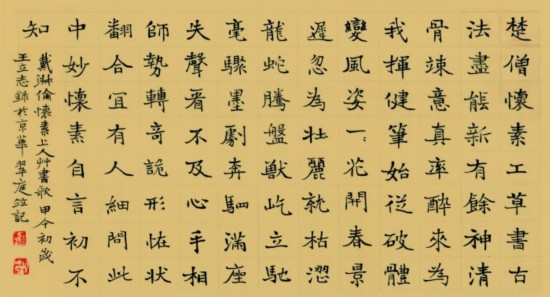 楚僧懷素工草書古
法盡能新有餘神清
骨竦意真率醉來為
我揮健筆始從破體
變風姿一、花開春景
遲忽為壯麗就枯澀
龍蛇騰盤獸屹立馳
毫驟墨劇奔駟滿座
失聲看不及心手相
師勢轉奇詭形怪狀
翻合宜有人細問此
中妙懷素自言初不
知
戴叔倫懷素上人艸書歌 甲午初歲
王立志錄於京華翠庭並記